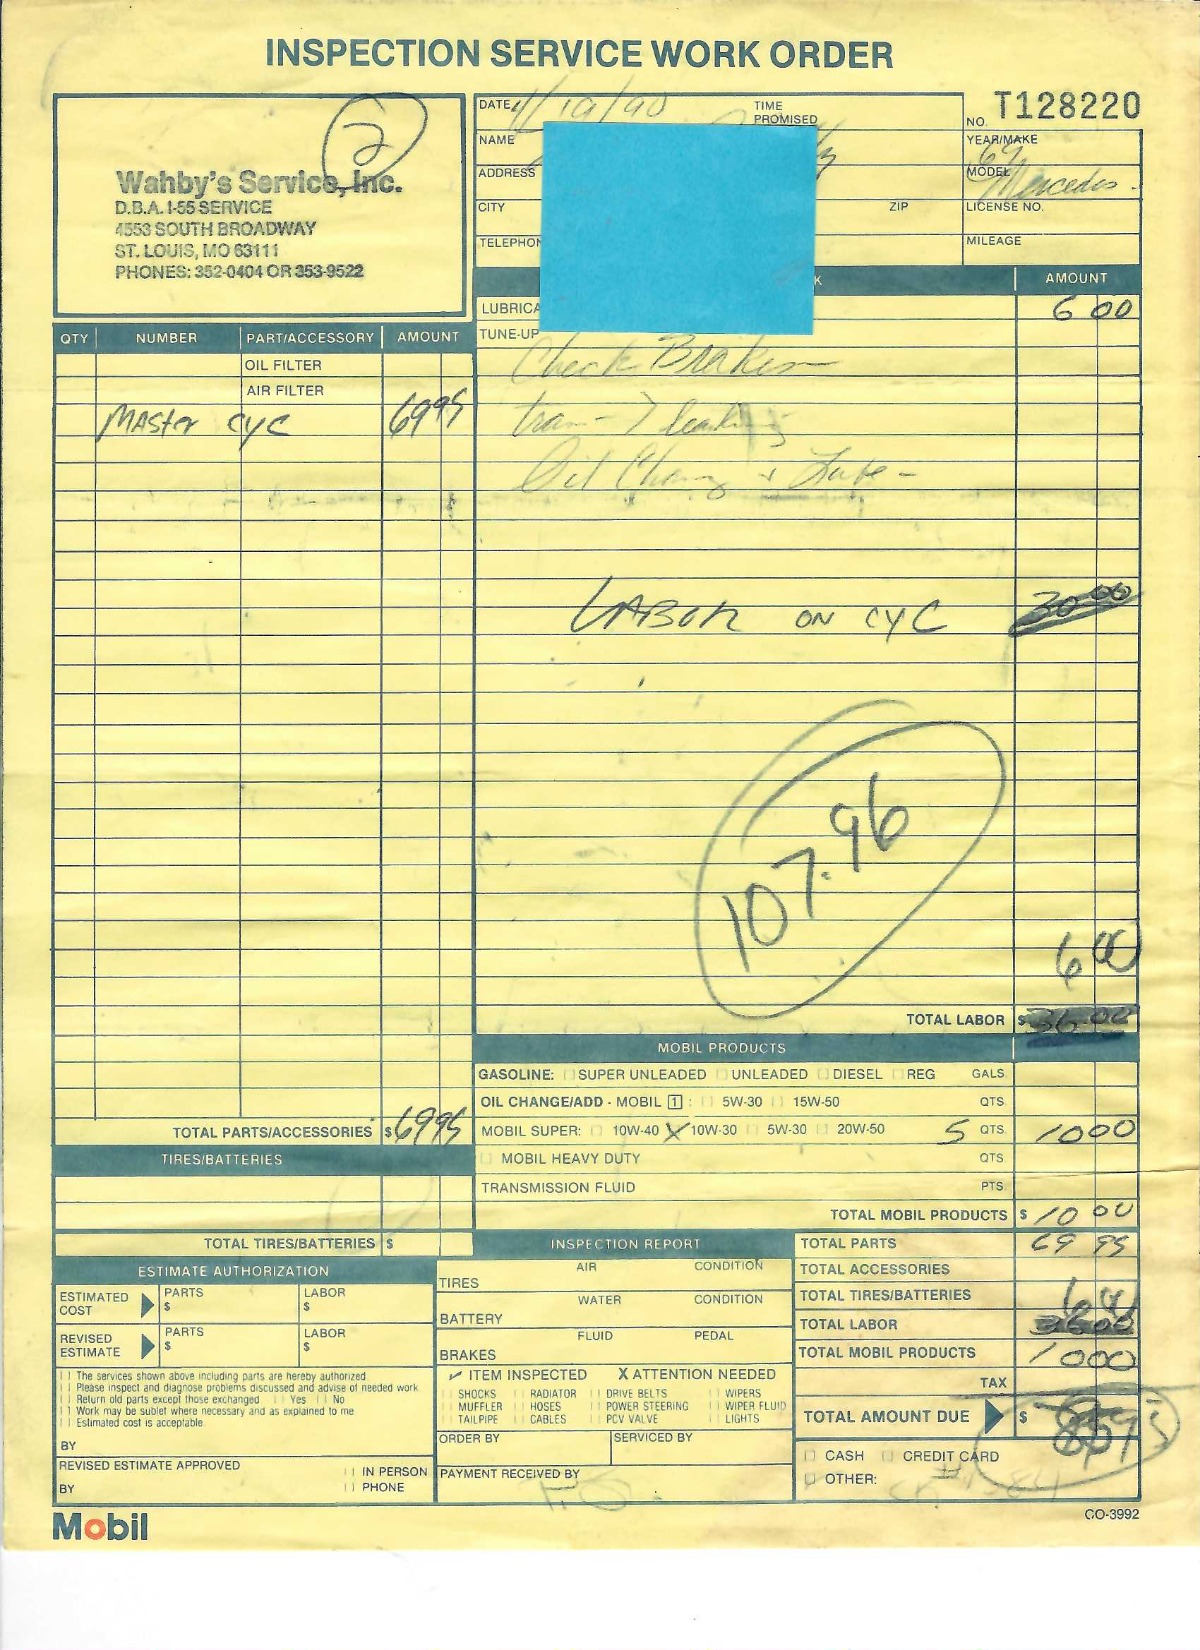 INSPECTION SERVICE WORK ORDER
2
Wahby's Service, Inc.
D.B.A. I-55 SERVICE
4553 SOUTH BROADWAY
ST. LOUIS, MO 63111
PHONES: 352-0404 OR 353-9522
DATE /19/90 TIME PROMISED
NO. T128220
NAME
YEAR/MAKE 69
ADDRESS
MODEL Mercedes
CITY ZIP LICENSE NO.
TELEPHON MILEAGE
K AMOUNT
LUBRICA 6 00
TUNE-UP
QTY NUMBER PART/ACCESSORY AMOUNT
OIL FILTER
AIR FILTER
Master CYC 69 95
Check Brakes
tran- > leaking
Oil Chang + Lube -
LABOR ON CYC 30 00
107.96
6 00
TOTAL LABOR $ 36 00
MOBIL PRODUCTS
GASOLINE: SUPER UNLEADED UNLEADED DIESEL REG GALS.
OIL CHANGE/ADD - MOBIL 1 : 5W-30 15W-50 QTS.
MOBIL SUPER: 10W-40 X 10W-30 5W-30 20W-50 5 QTS. 10 00
MOBIL HEAVY DUTY QTS.
TRANSMISSION FLUID PTS.
TOTAL MOBIL PRODUCTS $ 10 00
TOTAL PARTS/ACCESSORIES $ 69 95
TIRES/BATTERIES
TOTAL TIRES/BATTERIES $
ESTIMATE AUTHORIZATION
ESTIMATED COST PARTS $ LABOR $
REVISED ESTIMATE PARTS $ LABOR $
The services shown above including parts are hereby authorized
Please inspect and diagnose problems discussed and advise of needed work
Return old parts except those exchanged Yes No
Work may be sublet where necessary and as explained to me
Estimated cost is acceptable.
BY
REVISED ESTIMATE APPROVED IN PERSON
BY PHONE
INSPECTION REPORT
AIR CONDITION
TIRES
WATER CONDITION
BATTERY
FLUID PEDAL
BRAKES
✓ ITEM INSPECTED X ATTENTION NEEDED
SHOCKS RADIATOR DRIVE BELTS WIPERS
MUFFLER HOSES POWER STEERING WIPER FLUID
TAILPIPE CABLES PCV VALVE LIGHTS
ORDER BY SERVICED BY
PAYMENT RECEIVED BY
TOTAL PARTS 69 95
TOTAL ACCESSORIES
TOTAL TIRES/BATTERIES
6 00
TOTAL LABOR 36 00
TOTAL MOBIL PRODUCTS 10 00
TAX
TOTAL AMOUNT DUE $ 85 95
CASH CREDIT CARD
OTHER:
Mobil
CO-3992